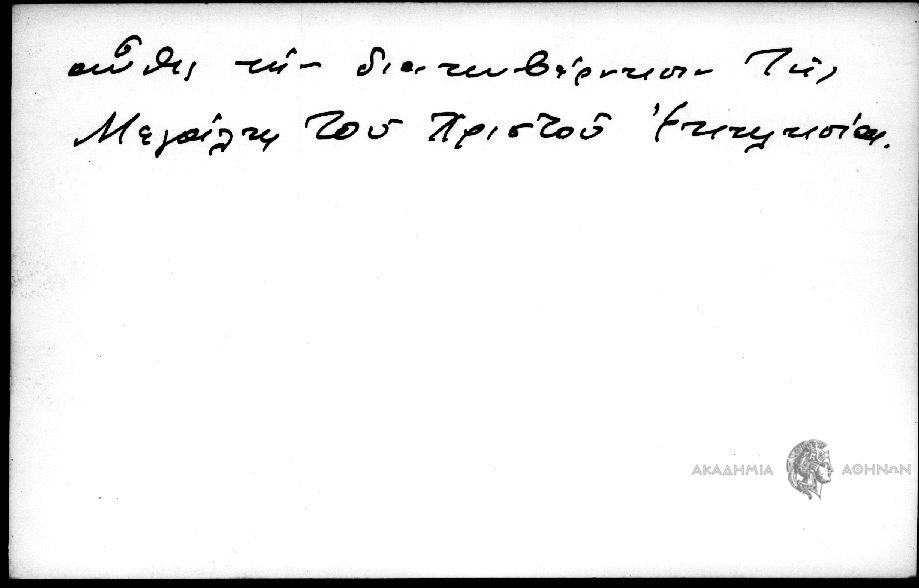 αὖθις τὴν διακυβέρνησιν τῆς
Μεγάλης τοῦ Χριστοῦ Ἐκκλησίας.
ΑΚΑΔΗΜΙΑ ΑΘΗΝΩΝ